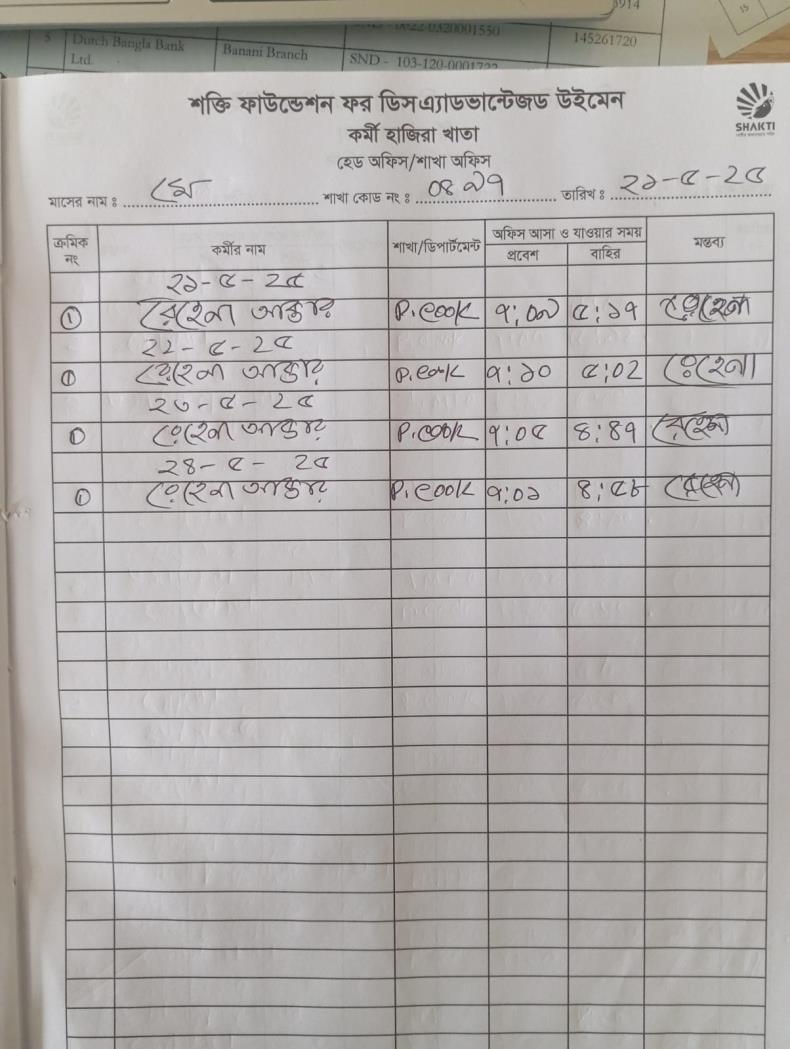 5 Dutch Bangla Bank Ltd. Banani Branch SND - 103-120-0001722 145261720
শক্তি ফাউন্ডেশন ফর ডিসএ্যাডভান্টেজড উইমেন
SHAKTI
কর্মী হাজিরা খাতা
হেড অফিস/শাখা অফিস
মাসের নাম ঃ মে শাখা কোড নং ঃ ০৪৯৭ তারিখ ঃ ২১-৫-২৫
ক্রমিক নং কর্মীর নাম শাখা/ডিপার্টমেন্ট অফিস আসা ও যাওয়ার সময় মন্তব্য
প্রবেশ বাহির
২১-৫-২৫
① রেহেনা আক্তার P.cook ৭:০৯ ৫:১৭ রেহেনা
২২-৫-২৫
① রেহেনা আক্তার P.cook ৭:১০ ৫:০২ রেহেনা
২৩-৫-২৫
① রেহেনা আক্তার P.cook ৭:০৫ ৪:৪৭ রেহেনা
২৪-৫-২৫
① রেহেনা আক্তার P.cook ৭:০১ ৪:৫৮ রেহেনা